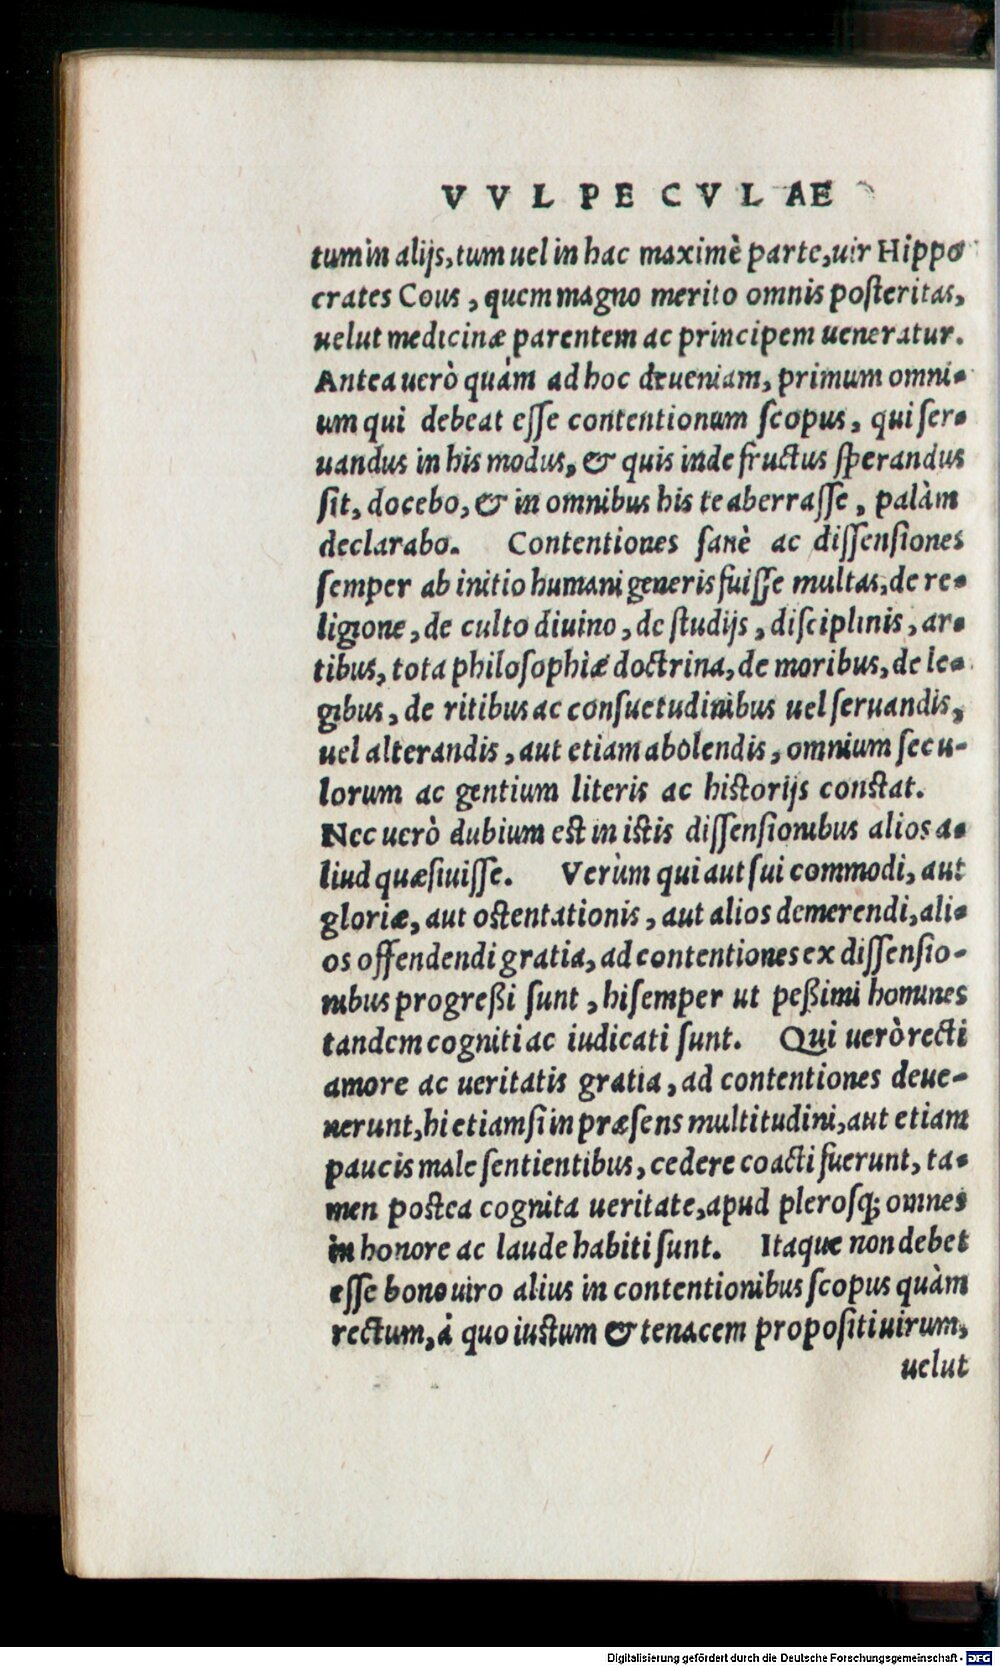 VVLPECVLAE
tum in alijs, tum uel in hac maximè parte, uir Hippo
crates Cous, quem magno merito omnis posteritas,
uelut medicinæ parentem ac principem ueneratur.
Antea uerò quàm ad hoc deueniam, primum omni-
um qui debeat esse contentionum scopus, qui ser-
uandus in his modus, & quis inde fructus sperandus
sit, docebo, & in omnibus his te aberrasse, palàm
declarabo. Contentiones sanè ac dissensiones
semper ab initio humani generis fuisse multas, de re-
ligione, de culto diuino, de studijs, disciplinis, ar-
tibus, tota philosophiæ doctrina, de moribus, de le-
gibus, de ritibus ac consuetudinibus uel seruandis,
uel alterandis, aut etiam abolendis, omnium secu-
lorum ac gentium literis ac historijs constat.
Nec uerò dubium est in istis dissensionibus alios a-
liud quæsiuisse. Verùm qui aut sui commodi, aut
gloriæ, aut ostentationis, aut alios demerendi, ali-
os offendendi gratia, ad contentiones ex dissensio-
nibus progreßi sunt, hi semper ut peßimi homines
tandem cogniti ac iudicati sunt. Qui uerò recti
amore ac ueritatis gratia, ad contentiones deue-
nerunt, hi etiamsi in præsens multitudini, aut etiam
paucis male sentientibus, cedere coacti fuerunt, ta-
men postea cognita ueritate, apud plerosq; omnes
in honore ac laude habiti sunt. Itaque non debet
esse bono uiro alius in contentionibus scopus quàm
rectum, á quo iustum & tenacem propositi uirum,
uelut
Digitalisierung gefördert durch die Deutsche Forschungsgemeinschaft - DFG